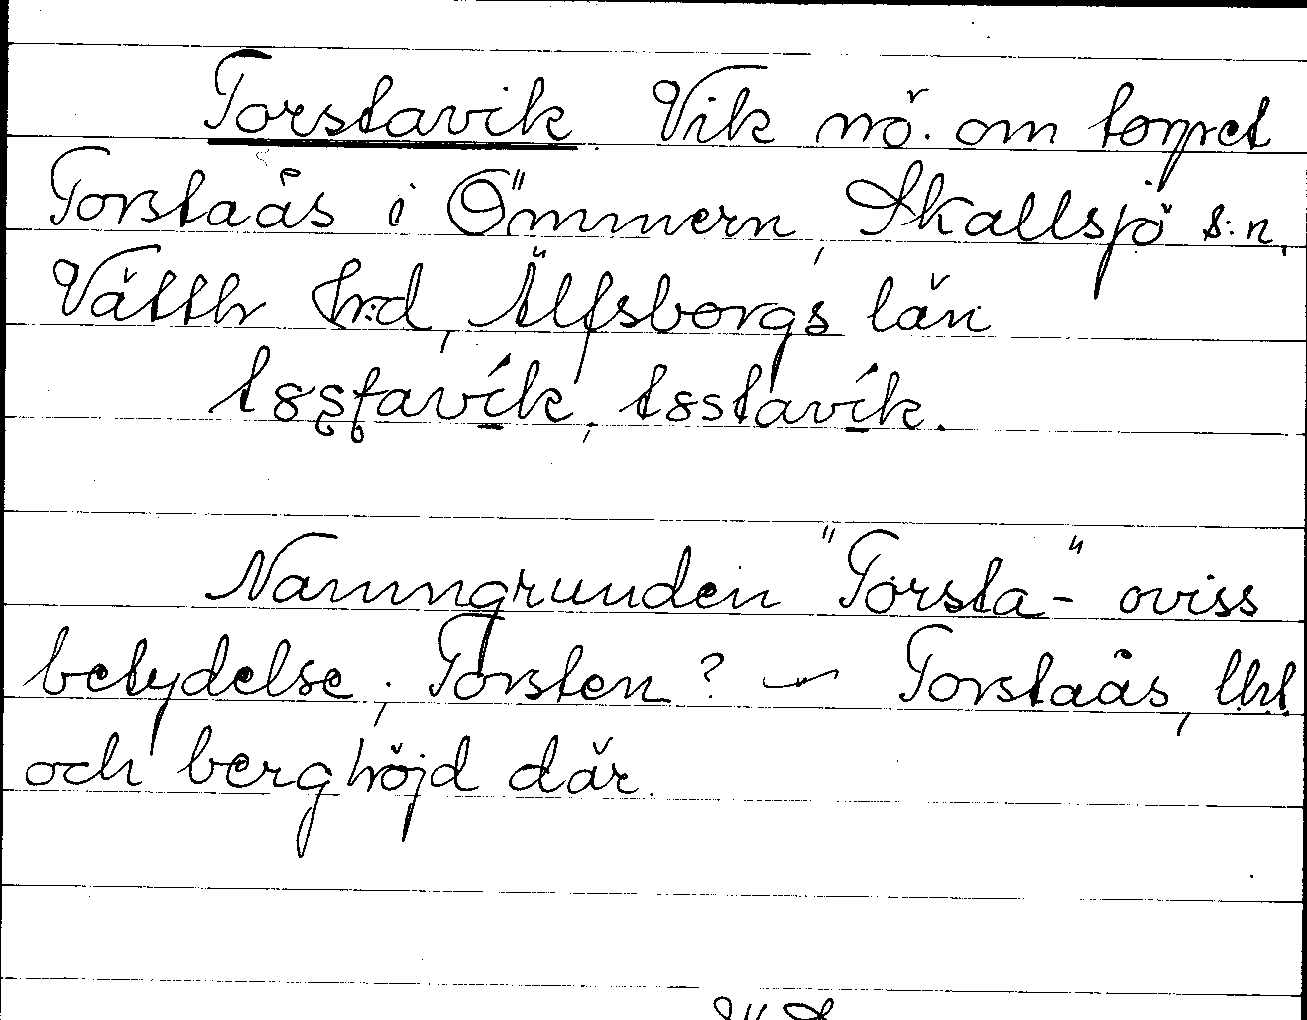 Torstavik Vik nö. om torpet
Torstaås i Ömmern, Skallsjö s:n,
Vättle h:d, Älfsborgs län
tsstavik, tsstavík.
Namngrunden "Torsta-" oviss
betydelse; Torsten? — Torstaås, lht
och berghöjd där.